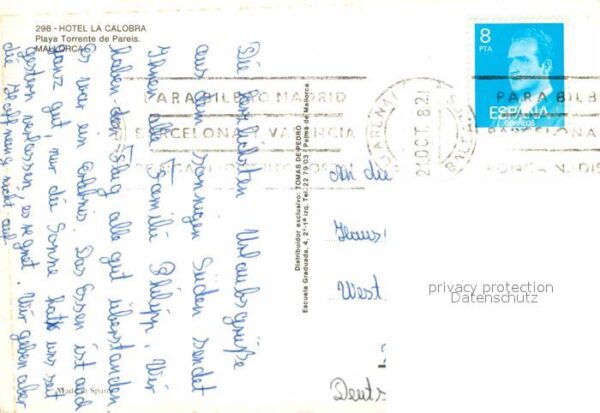 298 - HOTEL LA CALOBRA
Playa Torrente de Pareis.
MALLORCA
Die herzlichsten Urlaubsgrüße
aus dem sonnigen Süden sendet
Ihnen Familie Philipp. Wir
haben den Flug alle gut überstanden
Es war ein Erlebnis. Das Essen ist auch
ganz gut, nur die Sonne hat uns seit
gestern verlassen es regnet. Wir geben aber
die Hoffnung nicht auf.
Made in Spain
Distribuidor exclusivo: TOMAS DE PEDRO
Escuela Graduada, 4, 2º-1ª izq. Tel. 22 79 03 / Palma de Mallorca
8
PTA
ESPAÑA
CORREOS
PARA BILBAO MADRID
BARCELONA VALENCIA
OCT. 82
PARA BILB
BARCELONA
PONGA N. DIS
An die
Haus
West
Deuts
privacy protection
Datenschutz